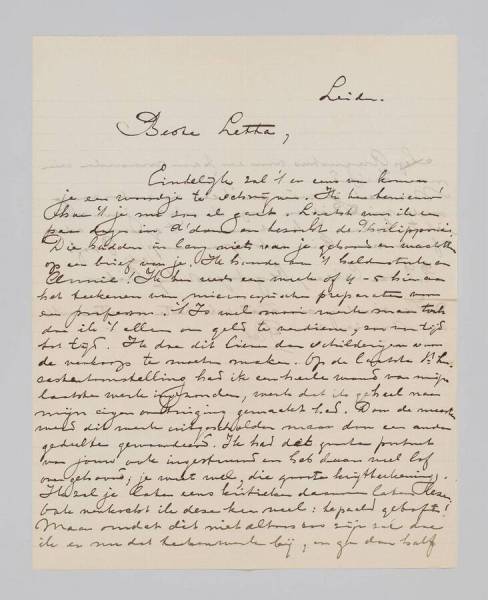 Leiden.
Beste Letta,
Eindelijk zal 't er eens van komen
je een woordje te schrijven. Ik ben benieuwd
hoe 't je nu zoo al gaat. Laatst was ik een
paar dagen in A'dam en bezocht de
Die hadden in lang niet van je gehoord en wachtten
op een brief van je. Ik hoorde van 't en
Annie! Ik ben reeds een week of 4-5 bezig aan
het teekenen van microscopische preparaten voor
een professor. 't Is wel mooi werk maar toch
doe ik 't alleen om geld te verdienen, zoo nu tijd
tot tijd. Ik doe dit liever dan schilderijen voor
de verkoop te moeten maken. Op de laatste
tentoonstelling had ik een heele wand van mijn
laatste werk ingezonden, werk dat ik geheel naar
mijn eigen overtuiging gemaakt had. Door de meesten
werd dit werk uitgescholden maar door een ander
gedeelte gewaardeerd. Ik had dat groote portret
van jouw ook ingestuurd en heb daar veel lof
over gehoord; je weet wel, die groote krijtteekening.
Ik zal je later eens kritieken daarover laten lezen.
Ook verkocht ik deze keer veel:
Maar omdat dit niet altoos zoo zijn zal doe
ik er nu dat teekenwerk bij, en ga dan half